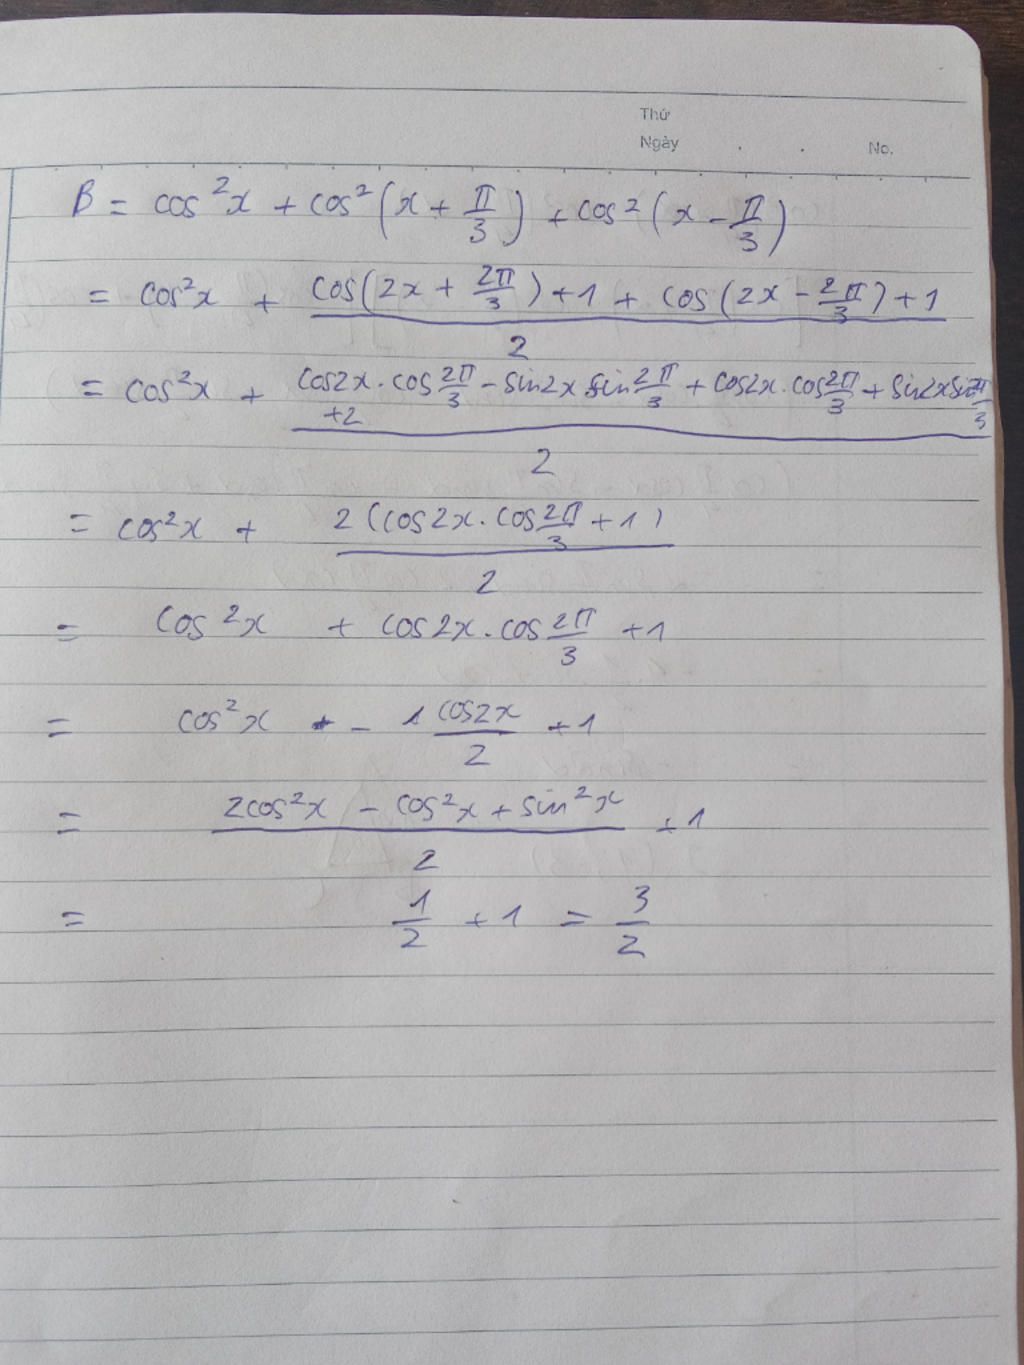 Thứ
Ngày . . No.
B = cos²x + cos²(x + π/3) + cos²(x - π/3)
= cos²x + (cos(2x + 2π/3) + 1 + cos(2x - 2π/3) + 1)/2
= cos²x + (cos2x . cos 2π/3 - sin2x sin 2π/3 + cos2x . cos 2π/3 + sin2x sin 2π/3 + 2)/2
= cos²x + 2(cos2x . cos 2π/3 + 1)/2
= cos²x + cos2x . cos 2π/3 + 1
= cos²x - 1 cos2x/2 + 1
= (2cos²x - cos²x + sin²x)/2 + 1
= 1/2 + 1 = 3/2